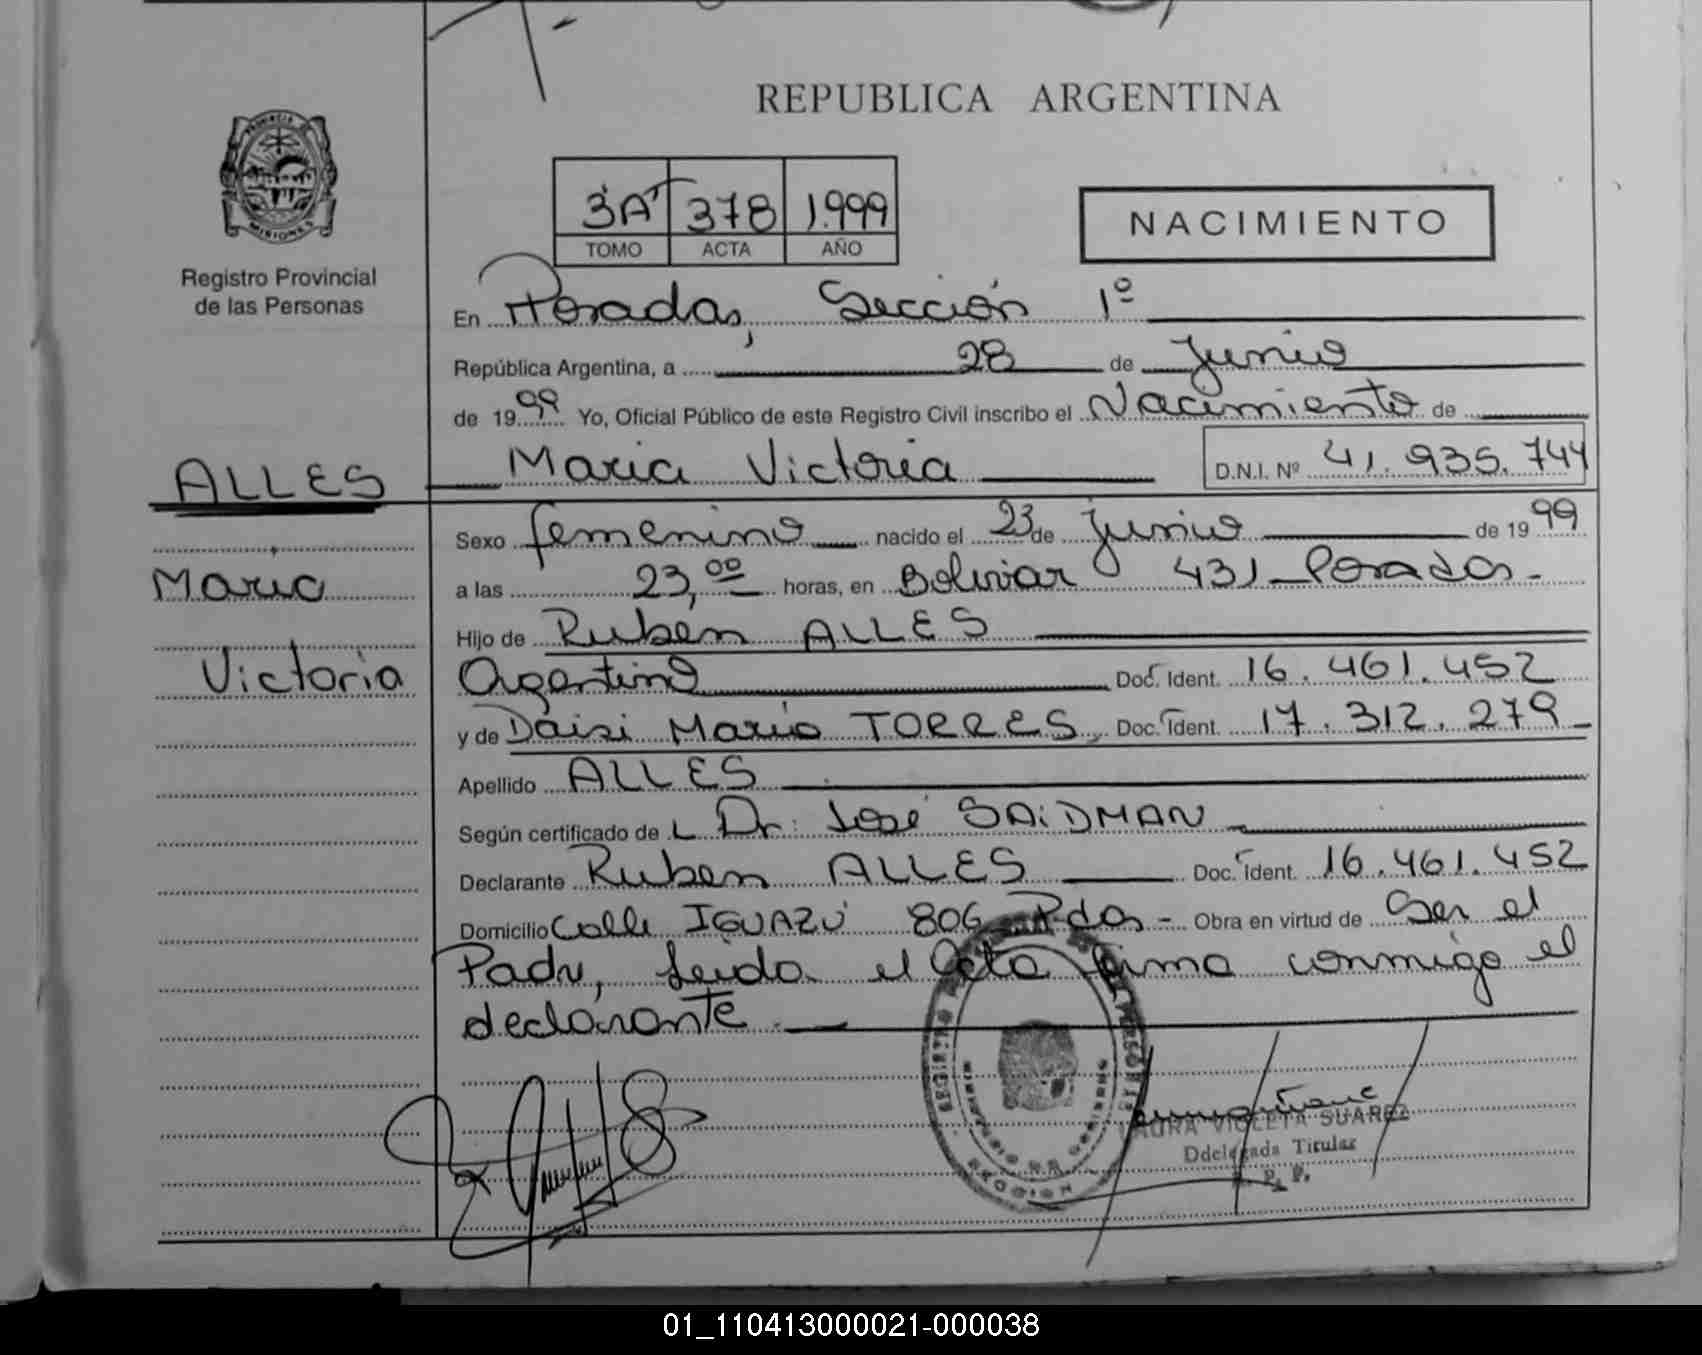 REPUBLICA ARGENTINA
PROVINCIA DE
MISIONES
Registro Provincial
de las Personas
3A 378 1.999
TOMO ACTA AÑO
NACIMIENTO
En Posadas, Sección 1º
República Argentina, a 28 de Junio
de 1999 Yo, Oficial Público de este Registro Civil inscribo el Nacimiento de
Maria Victoria D.N.I. Nº 41.935.744
ALLES
Maria
Victoria
Sexo femenino nacido el 23 de Junio de 1999
a las 23,00 horas, en Bolivar 431 Posadas-
Hijo de Ruben ALLES
Argentino Doc. Ident. 16.461.452
y de Daisi Maria TORRES, Doc. Ident. 17.312.279-
Apellido ALLES
Según certificado de L Dr. José SAiDMAN
Declarante Ruben ALLES Doc. Ident. 16.461.452
Domicilio Calle IGUAZÚ 806 Pdas- Obra en virtud de Ser el
Padre, Leida el Acta firma conmigo el
declarante
LAURA VIOLETA SUAREZ
Ddelegada Titular
R. P. P.
01_110413000021-000038